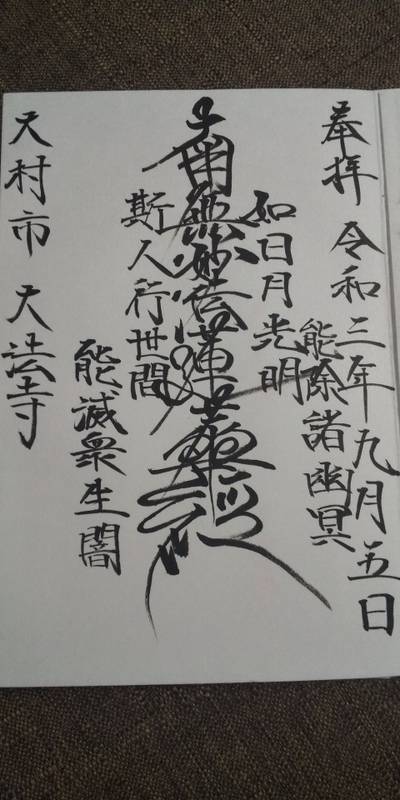 奉拝 令和三年九月五日
如日月光明
能除諸幽冥
南無妙法蓮華經
斯人行世間
能滅衆生闇
大村市 大法寺